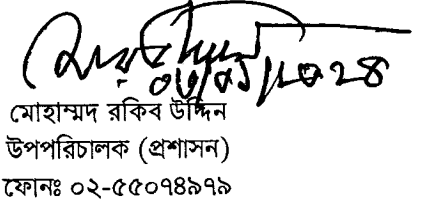 মোহাম্মদ রকিব উদ্দিন
উপপরিচালক (প্রশাসন)
ফোনঃ ০২-৫৫০৭৪৯৭৯